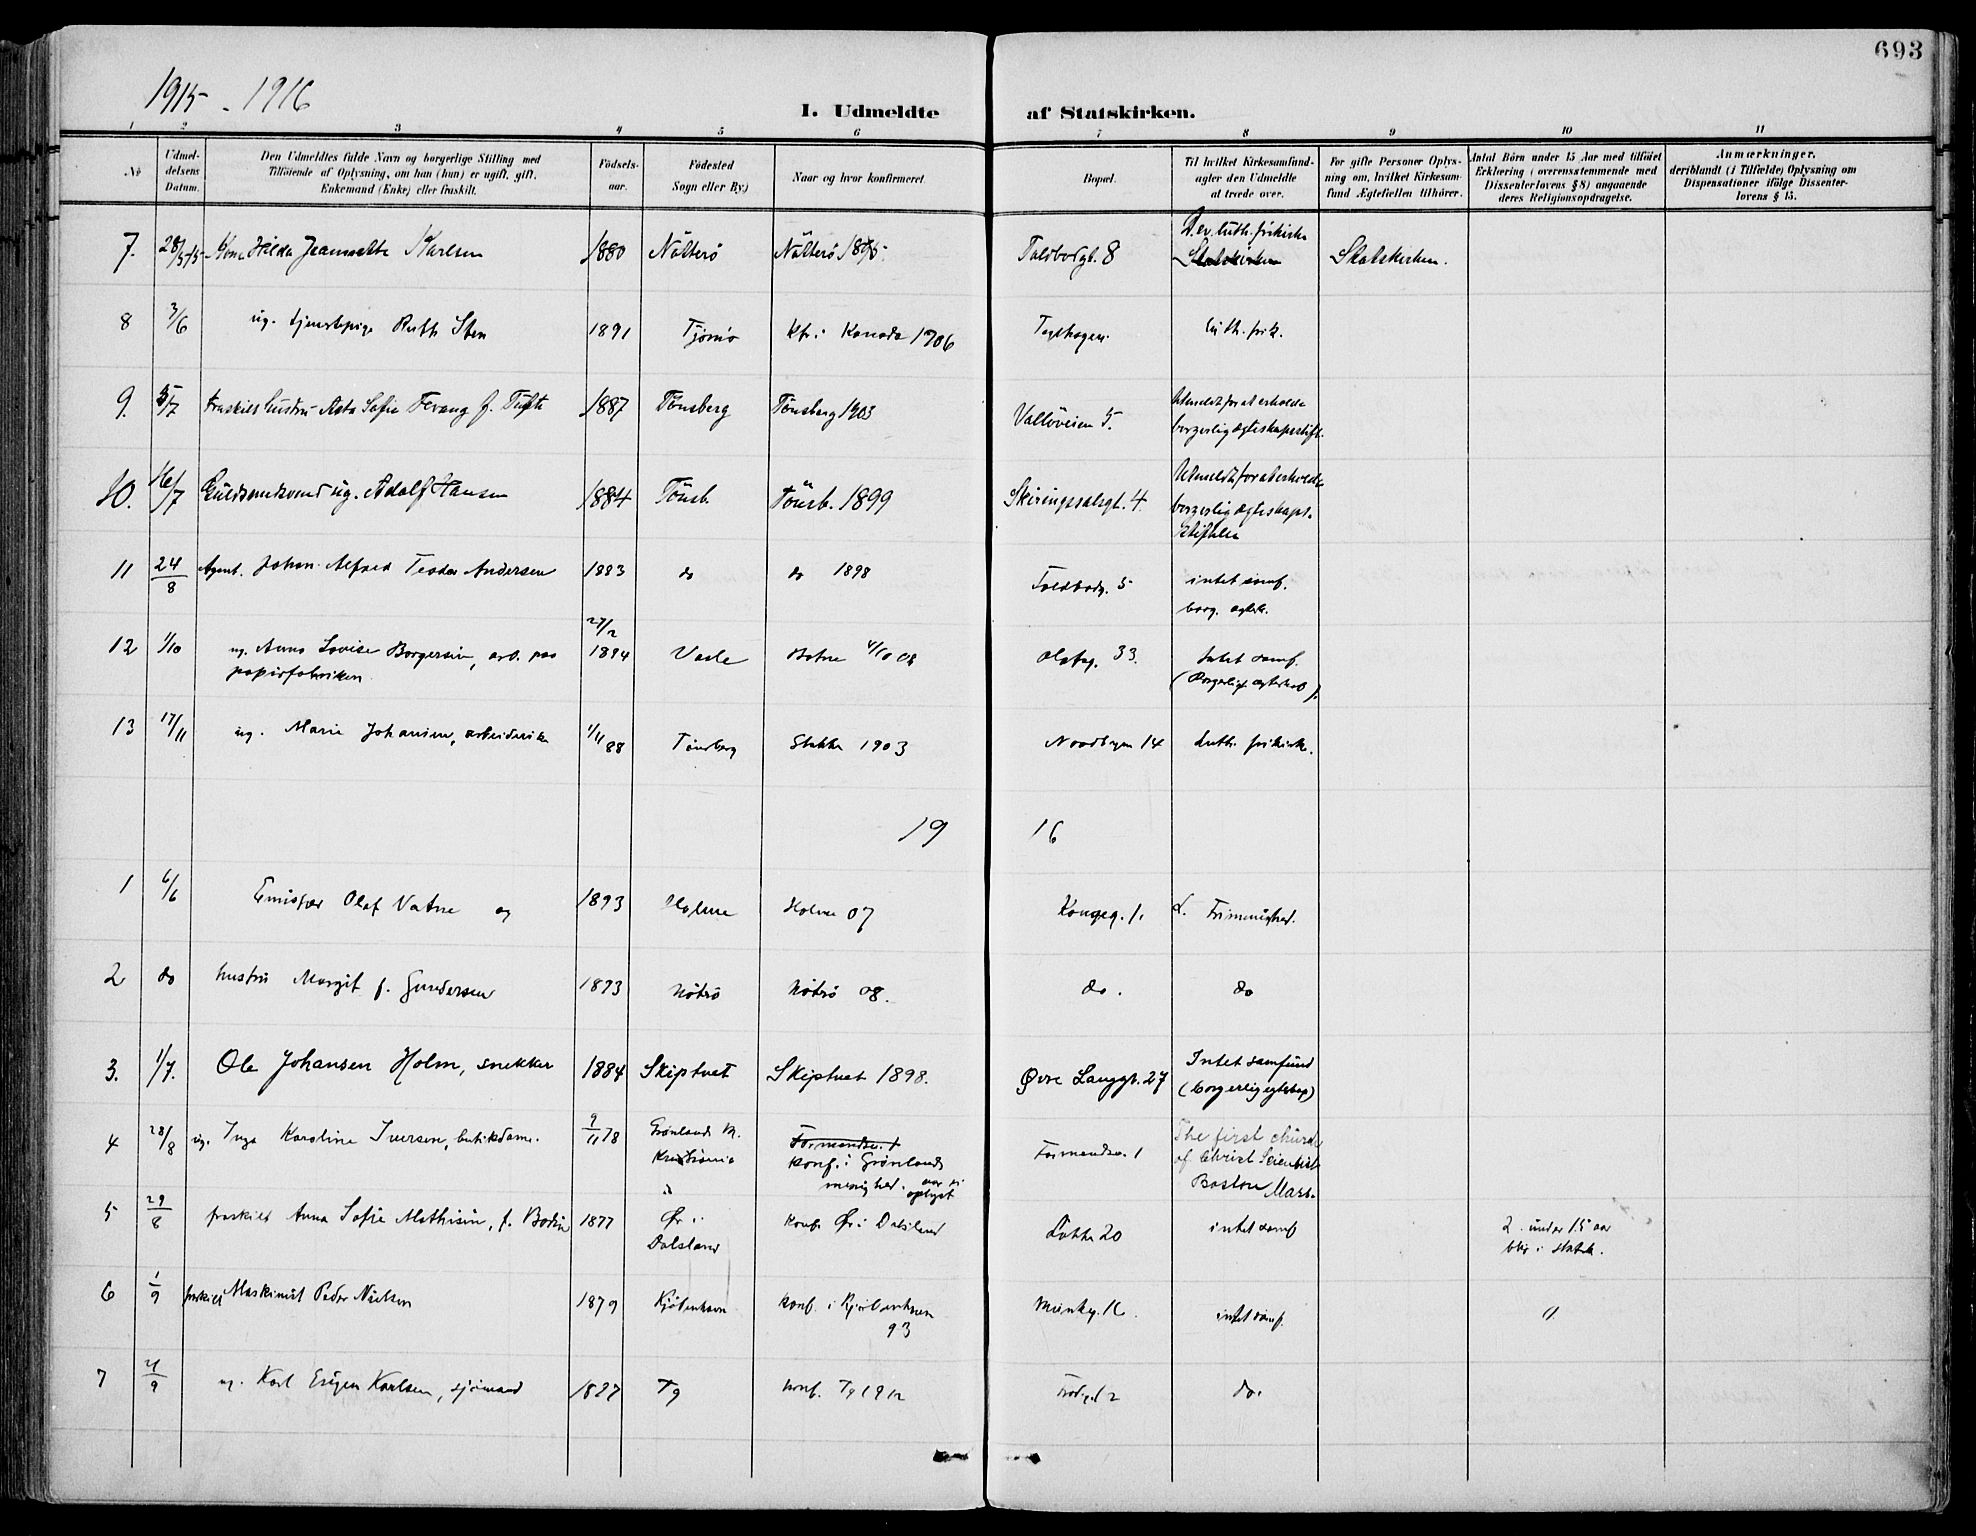 693
1915 - 1916
I. Udmeldte af Statskirken.
1 2 3 4 5 6 7 8 9 10 11
No
Udmeldelsens Datum.
Den Udmeldtes fulde Navn og borgerlige Stilling med
Tilföiende af Oplysning, om han (hun) er ugift, gift,
Enkemand (Enke) eller fraskilt.
Födselsaar.
Födested
Sogn eller By)
Naar og hvor konfirmeret.
Bopæl.
Til hvilket Kirkesamfund
agter den Udmeldte
at træde over.
For gifte Personer Oplysning om, hvilket Kirkesamfund Ægtefællen tilhörer.
Antal Börn under 15 Aar med tilföiet
Erklæring (overensstemmende med
Dissenterlovens § 8) angaaende
deres Religionsopdragelse.
Anmærkninger,
deriblandt (i Tilfælde) Oplysning om
Dispensationer ifölge Dissenterlovens § 15.
7. 28/5-15 Kone Hilda Jeannette Karlsen 1880 Nötterö Nötterö 1895. Toldbodgt. 8 D. ev. luth. frikirke
Statskirken Statskirken.
8 3/6 ug. tjenestepige Ruth Sten 1891 Tjömö kfr. i Kanada 1906 Teglhagen. luth. frik.
9. 5/7 fraskilt hustru Asta Sofie Fevang f. Tufte 1887 Tönsberg Tönsberg 1903 Vallöveien 5. Utmeldt for at erholde
borgerlig ægteskapsstift.
10. 16/7 Guldsmedsvend ug. Adolf Hansen 1884 Tönsb. Tönsb. 1899 Skiringssalsgt. 4. Utmeldt for at erholde
borgerlig ægteskaps-
stiftelse
11 24/8 Agent. Johan Alfred Teodor Andersen 1883 do do 1898 Toldbodg. 5 intet samf.
borg. ægtesk.
12 1/10 ug. Anna Lovise Borgersen, arb. paa
papirfabriken. 27/2 1894 Vaale Botne 4/10 08 Olafsg. 33. Intet samf.
(Borgerligt ægteskab).
13 17/11 ug. Marie Johansen, arbeiderske 1/11 88 Tönsberg Stokke 1903 Nordbyen 14 Luth. frikirk.
19 16
1 6/6 Emissær Olaf Vatne og 1893 Holme Holme 07 Kongeg. 1. L. Frimenighed.
2 do hustru Margit f. Gundersen 1893 Nötrö Nötrö 08. do. do
3. 1/7. Ole Johansen Holm, snekker 1884 Skiptvet Skiptvet 1898. Øvre Langgt. 27 Intet samfund
(borgerlig egteskap)
4 28/8 ug. Inga Karoline Iversen, butikdame. 9/11 78 Grønlands M.
Kristiania Formandsv. 1
konf. i Grønlands
menighed. aar ei
oplyst Formandsv. 1 The first church
of Christ Scientist
Boston Mass.
5 29/8 fraskilt Anna Sofie Mathisen, f. Bodin 1877 Ør i
Dalsland konf. Ør i Dalsland Løkke 20 intet samf 2 under 15 aar
blir i statsk.
6 1/9 fraskilt Maskinist Peder Nielsen 1879 Kjöbenhavn konf. i Kjöbenhavn
93 Munkeg. 16. intet samf. 0
7 21/9 ug. Karl Eugen Karlsen, sjömand 1897 Tg konf. Tg 1912 do.